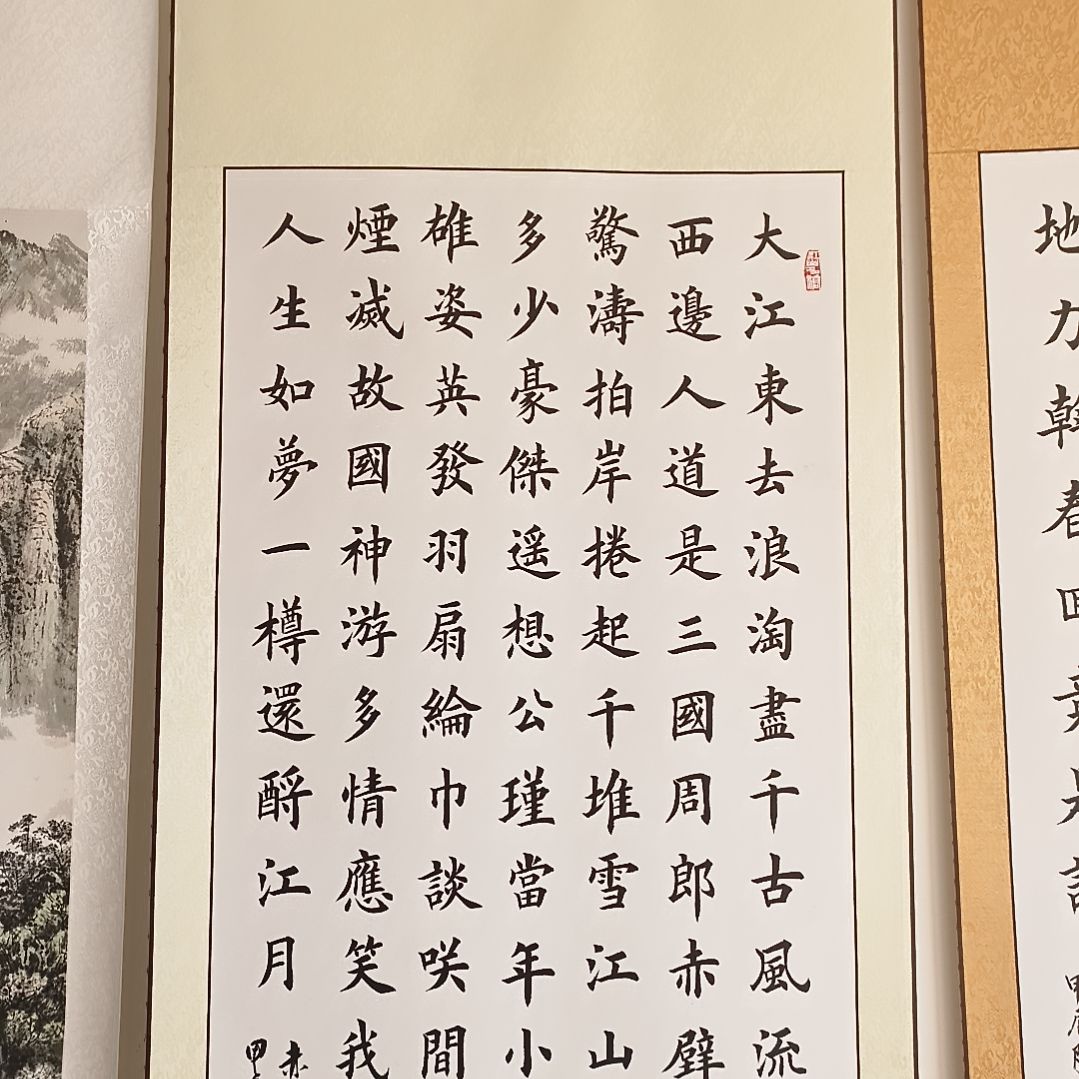 地
大江東去浪淘盡千古風流
西邊人道是三國周郎赤壁
驚濤拍岸捲起千堆雪江山
多少豪傑遥想公瑾當年小
雄姿英發羽扇綸巾談咲間
煙滅故國神游多情應笑我
人生如夢一樽還酹江月
赤
甲